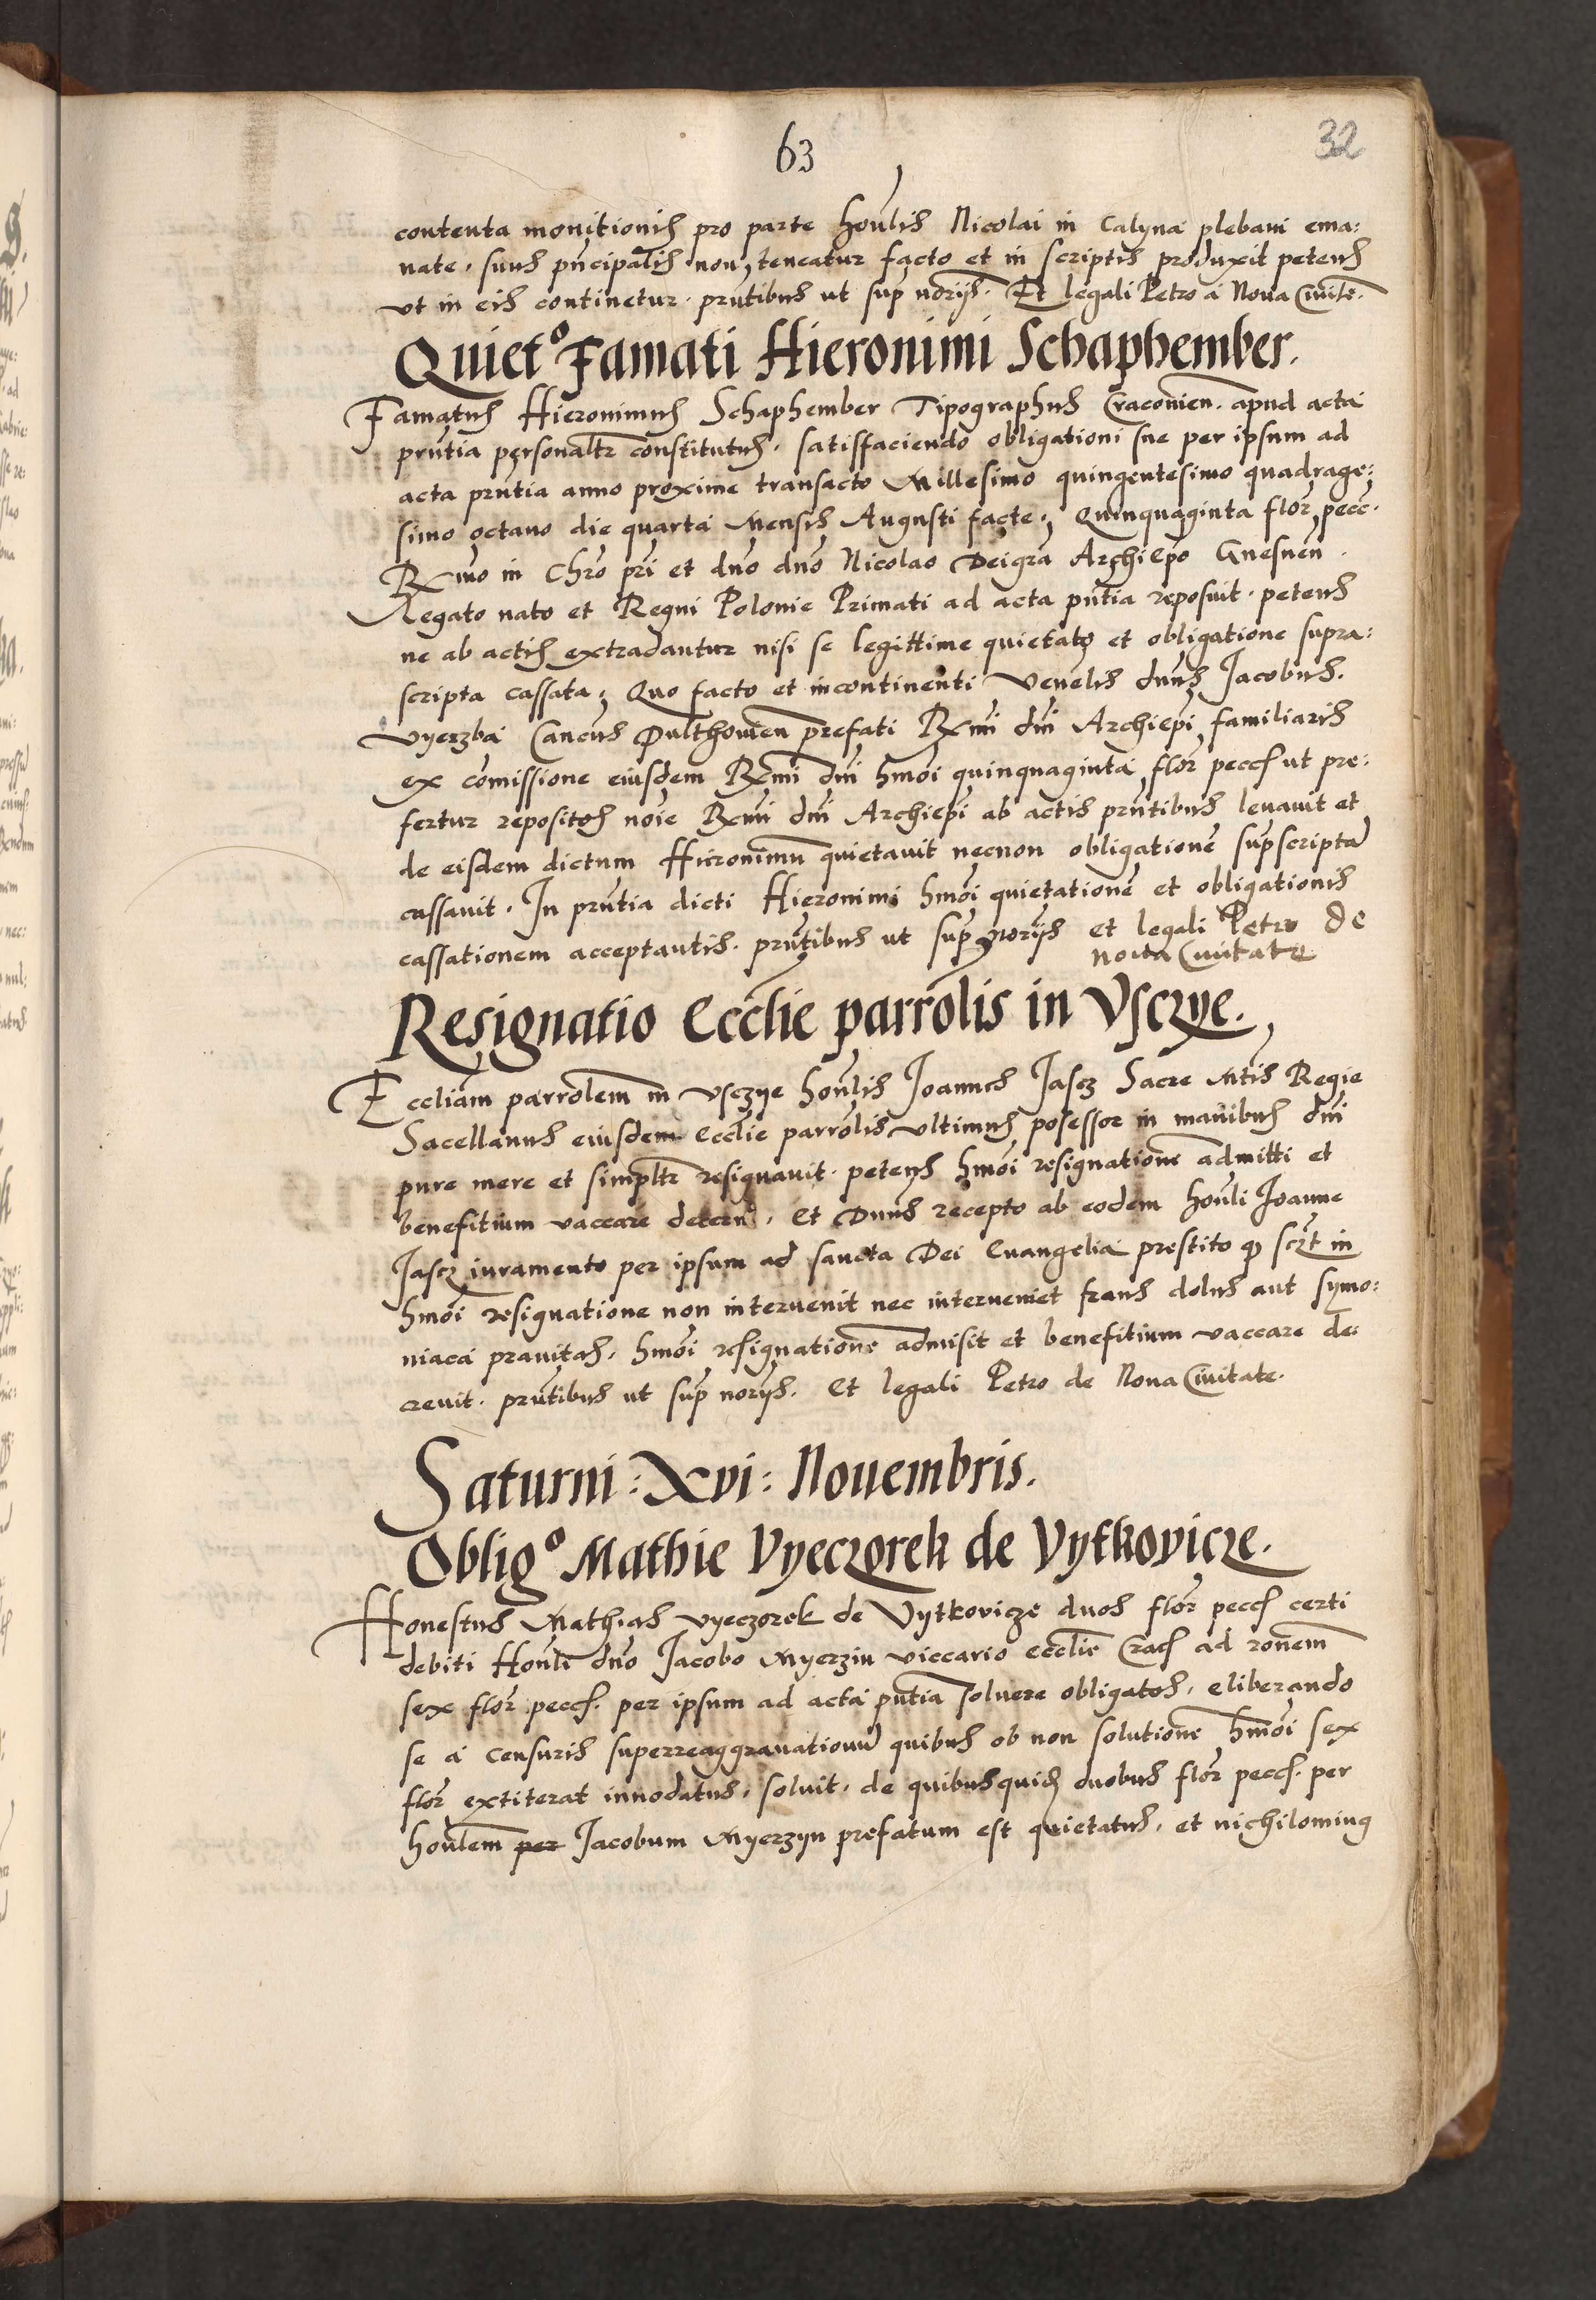 63
32
contenta monitionis pro parte honlis Nicolai in Calyna plebani ema:
nate. suus pncipalis non teneatur facto et in scriptis produxit petens
vt in eis continetur. pntibus ut sup notrijs. Et legali Petro a Noua Ciuite.
Quiet° Famati Hieronimi Schaphember.
Famatus Hieronimus Schaphember Tipographus Cracouien. apud acta
pntia personaltr constitutus, satisfaciendo obligationi sue per ipsum ad
acta pntia anno proxime transacto Millesimo quingentesimo quadrage:
simo octauo die quarta Mensis Augusti facte, Quinquaginta flor pecc.
Rxmo in Chro pri et dno dno Nicolao Deigra Archiepo Gnesnen.
Legato nato et Regni Polonie Primati ad acta pntia reposuit. petens
ne ab actis extradantur nisi se legittime quietato et obligatione supra:
scripta cassata, Quo facto et incontinenti Venelis dnus Jacobus.
Vyerzba Cancus Pulthouien prefati Rxmi dni Archiepi familiaris
ex comissione eiusdem Rxmi dni hmoi quinquaginta flor pecc ut pre:
fertur repositos noie Rxmi dni Archiepi ab actis pntibus leuauit et
de eisdem dictum Hieronimu quietauit necnon obligatione supscripta
cassauit. In pntia dicti Hieronimi hmoi quietatione et obligationis
cassationem acceptantis. pntibus ut sup norijs et legali Petro de
noua Ciuitate
Resignatio Ecclie parrolis in Vsczye.
Eccliam parrolem in Vsczye honlis Joannes Jascz Sacre Mtis Regie
Sacellanus eiusdem Ecclie parrolis vltimus posessor in manibus dni
pure mere et simpltr resignauit. petens hmoi resignatione admitti et
benefitium vaccare decern, et Dnus recepto ab eodem honli Joanne
Jascz iuramento per ipsum ad sancta Dei Euangelia prestito q scrt in
hmoi resignatione non interuenit nec interueniet fraus dolus aut symo:
niaca prauitas, hmoi resignatione admisit et benefitium vaccare de:
creuit. pntibus ut sup norijs. et legali Petro de Noua Ciuitate.
Saturni: Xvi: Nouembris.
Oblig° Mathie Vyeczorek de Vytkovicze.
Honestus Mathias Vyeczorek de Vytkovicze duos flor pecc certi
debiti Honli dno Jacobo Myerzin viccario ecclie Crac ad ronem
sex flor pecc. per ipsum ad acta pntia soluere obligatos, eliberando
se a censuris superreaggrauationu quibus ob non solutione hmoi sex
flor extiterat innodatus, soluit. de quibusquid duobus flor pecc. per
honlem per Jacobum Myerzyn prefatum est quietatus, et nichilominus